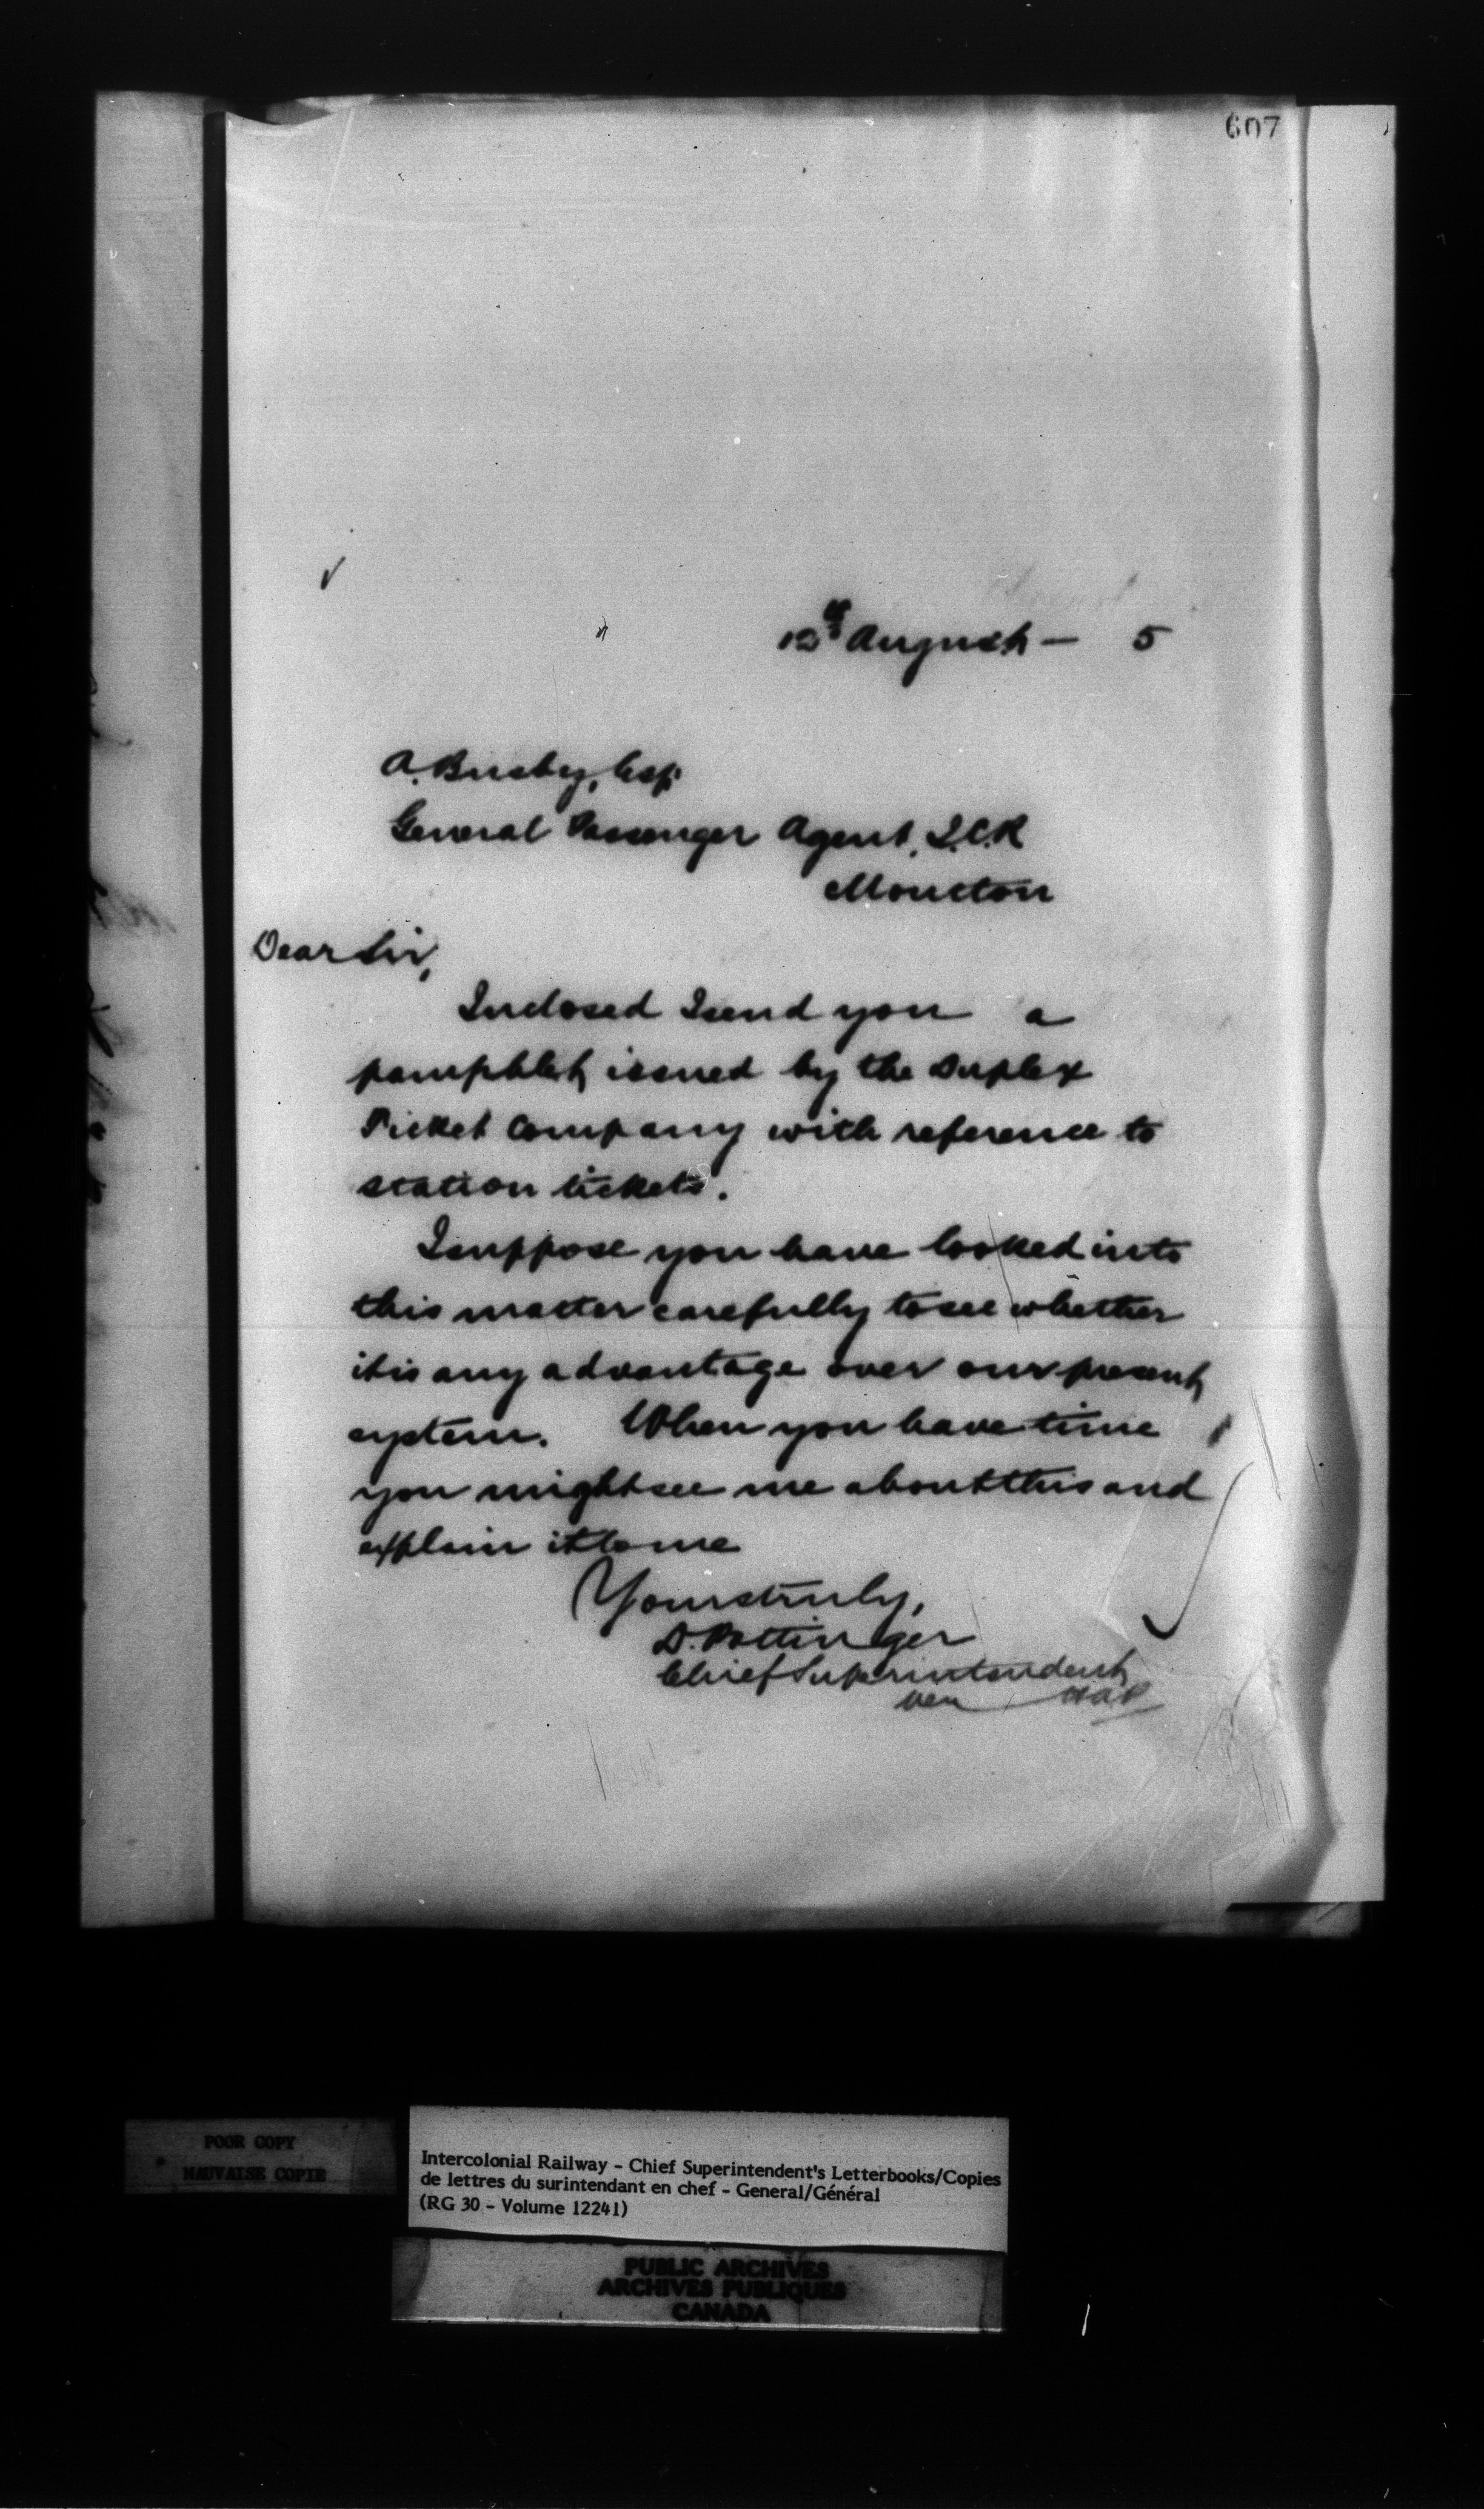 607
12th August — 5
A. Busby, Esq.
General Passenger Agent, I.C.R
Moncton
Dear Sir,
Inclosed I send you a
pamphlet issued by the Duplex
Ticket Company with reference to
station tickets.
I suppose you have looked into
this matter carefully to see whether
it is any advantage over our present
system. When you have time
you might see me about this and
explain it to me
Yours truly,
D. Pottinger
Chief Superintendent
POOR COPY
MAUVAISE COPIE
Intercolonial Railway - Chief Superintendent's Letterbooks/Copies
de lettres du surintendant en chef - General/Général
(RG 30 - Volume 12241)
PUBLIC ARCHIVES
ARCHIVES PUBLIQUES
CANADA